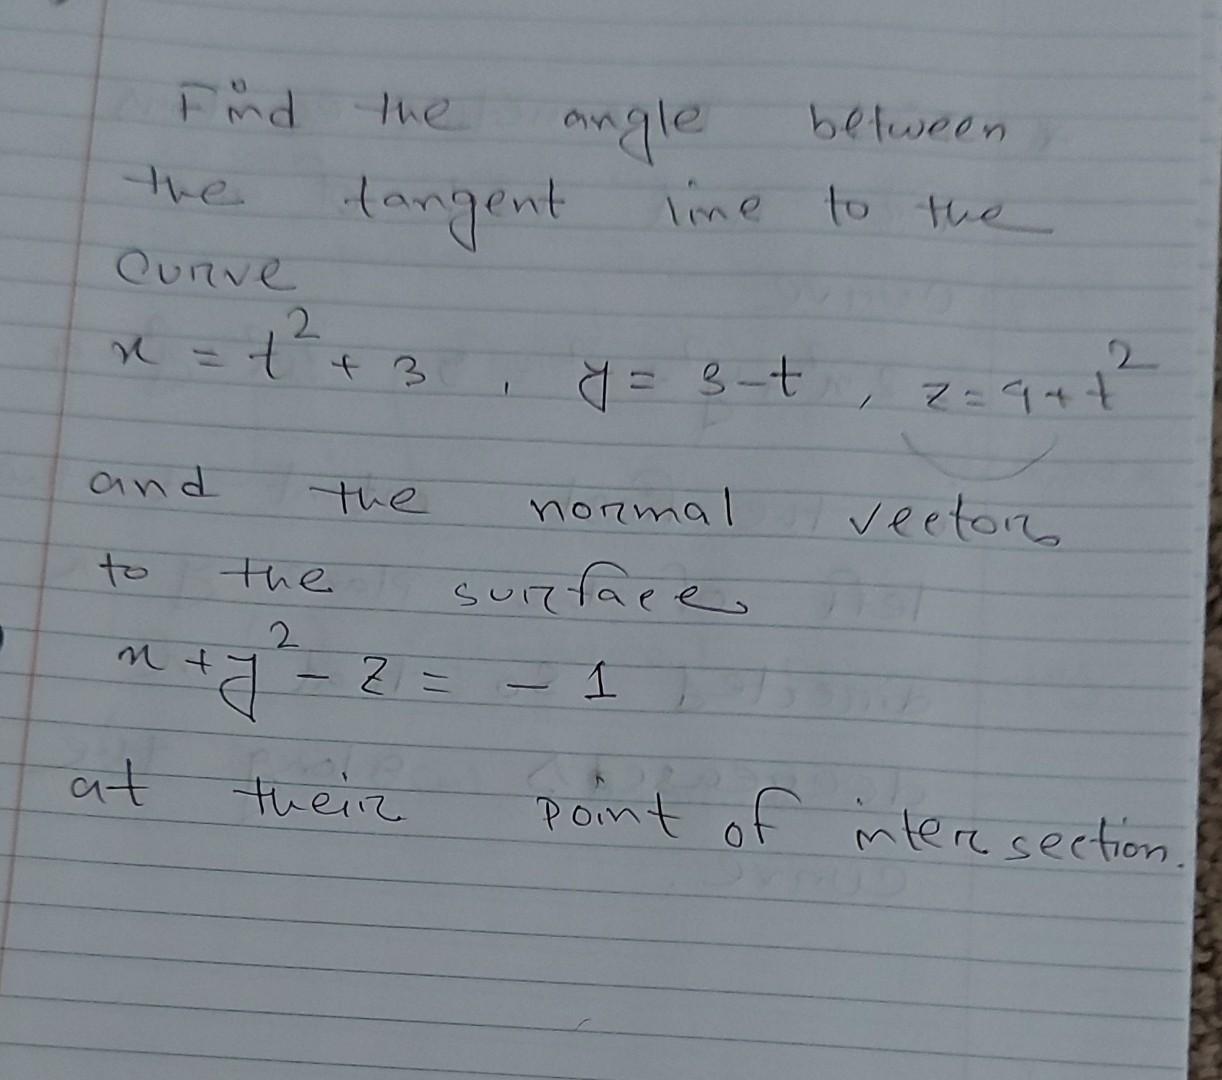 Find the angle between
the tangent line to the
curve
x = t² + 3 , y = 3-t , z = 9+t²
and the normal vector
to the surface
x + y² - z = - 1
at their point of intersection.